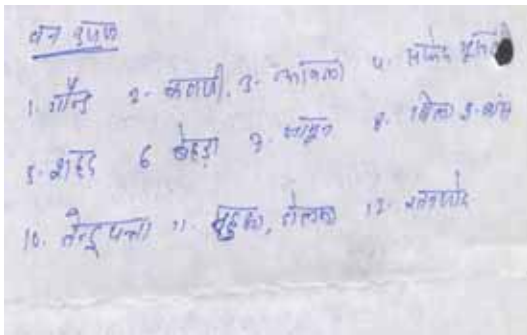 वन उपज
1. गोंद 2- करंजी, 3- आंवला 4. सफेद मूसली
5- शहद 6 बेहड़ा 7- जामुन 8-
10. तेन्दुपत्ता 11- महुआ, 12- रतनजोत